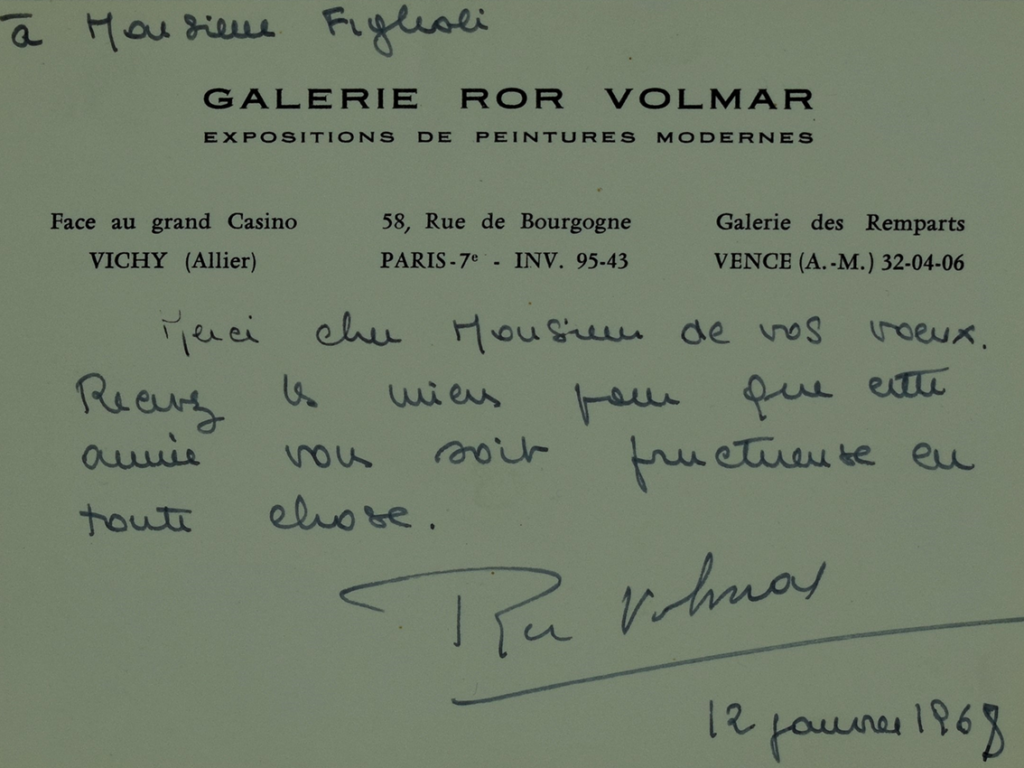 à Monsieur Figlioli
GALERIE ROR VOLMAR
EXPOSITIONS DE PEINTURES MODERNES
Face au grand Casino 58, Rue de Bourgogne Galerie des Remparts
VICHY (Allier) PARIS-7e - INV. 95-43 VENCE (A.-M.) 32-04-06
Merci cher Monsieur de vos voeux.
Recevez les miens pour que cette
année vous soit fructueuse en
toute chose.
Ror Volmar
12 janvier 1968